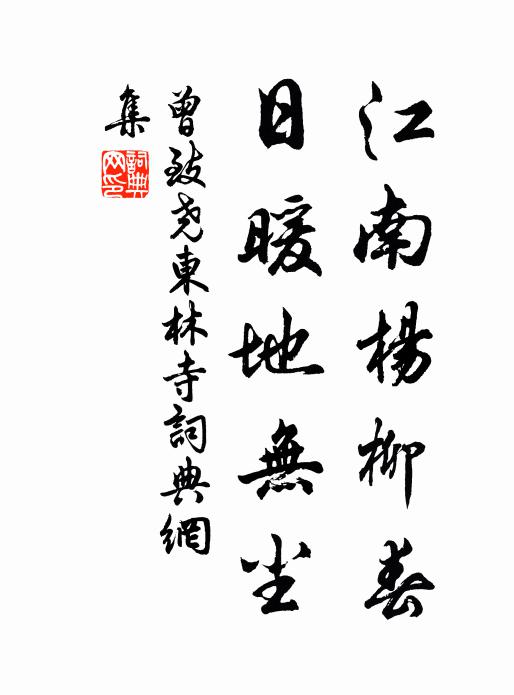 江南楊柳春
日暖地無塵
曾致尧東林寺詞典網
集
詞典
网印